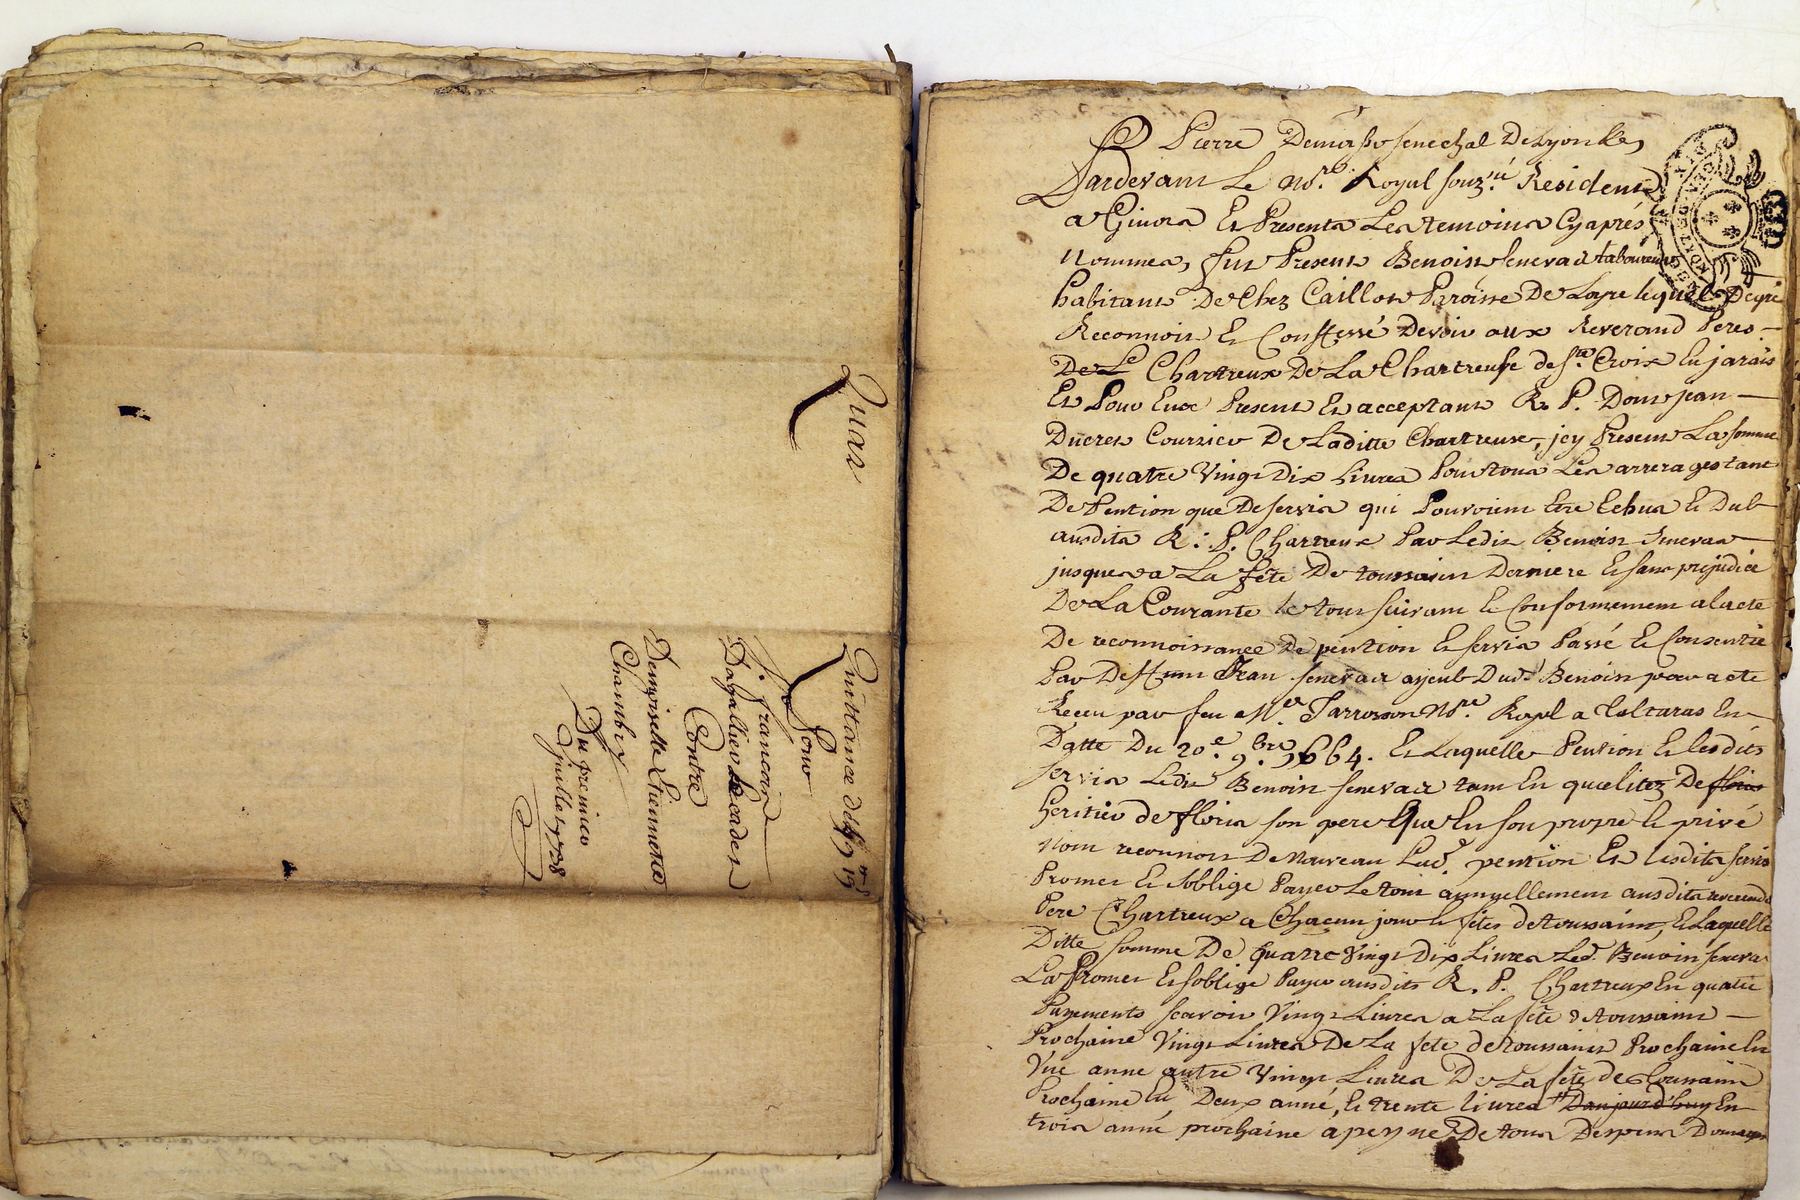 Quat
Quittance de 97 lt 19
Pour
Sr. francois
Dagallier Decadet
Contre
Demoiselle Etiennette
Chambry
Du premier
Juillet 1738
Pierre Demasso senechal De Lyon
Pardevant Le nore. Royal souz.né Residant
a Givors Et Presents Les temoins Cyaprés
nommes, fut Present Benoist senevas
habitant De Chez Caillot Paroisse De Laye lequel De gré
Reconnoit Et Conffessé Devoir aux Reverand Peres
De L Chartreux De La Chartreuse de Ste. Croix En jarais
Et Pour Eux Present Et acceptant R. P. Dom jean
Ducret Courrier De Laditte Chartreuse, jcy Present La somme
De quatre Vingt Dix Livres Pour tous Les arrerages tant
De Pention que De servis qui Pouvoient Etre Echus Et Dub
ausdits R. P. Chartreux Par Ledit Benoist senevas
jusques a La fête De toussaint Derniere Et sans prejudice
De La Courante le tout suivant Et Conformement a lacte
De reconnoissance De pention Et servis Passé Et Consentie
Par Deffunt Jean senevas ayeult Dud. Benoist par acte
Receu par feu Me. Jarrosson Nore. Royal a Taltaras En
Datte Du 20e. 9.bre 1664. Et Laquelle Pention Et lesdits
servis Ledit Benoist senevas tant En qualitez De floris
heritier de floris son pere Que En son propre Et privé
nom reconnoit De Nouveau Lad. pention Et lesdits servis
Promet Et soblige Payer Le tout annuellement ausdits reverend
Pere Chartreux a Chacun jour Et fêtes de toussaint, Et Laquelle
Ditte somme De quatre Vingt Dix Livres Led. Benoist seneva
La Promet Et soblige Payer ausdits R. P. Chartreux En quatre
Payements scavoir Vingt Livres a La fête de toussaint
Prochaine Vingt Livres De La fete de toussaint Prochaine En
Une anné autre Vingt Livres De La fête de toussaint
Prochaine En Deux anné, Et trente livres Daujourd'huy En
trois anné prochaine a peyne De tous Depens Domages